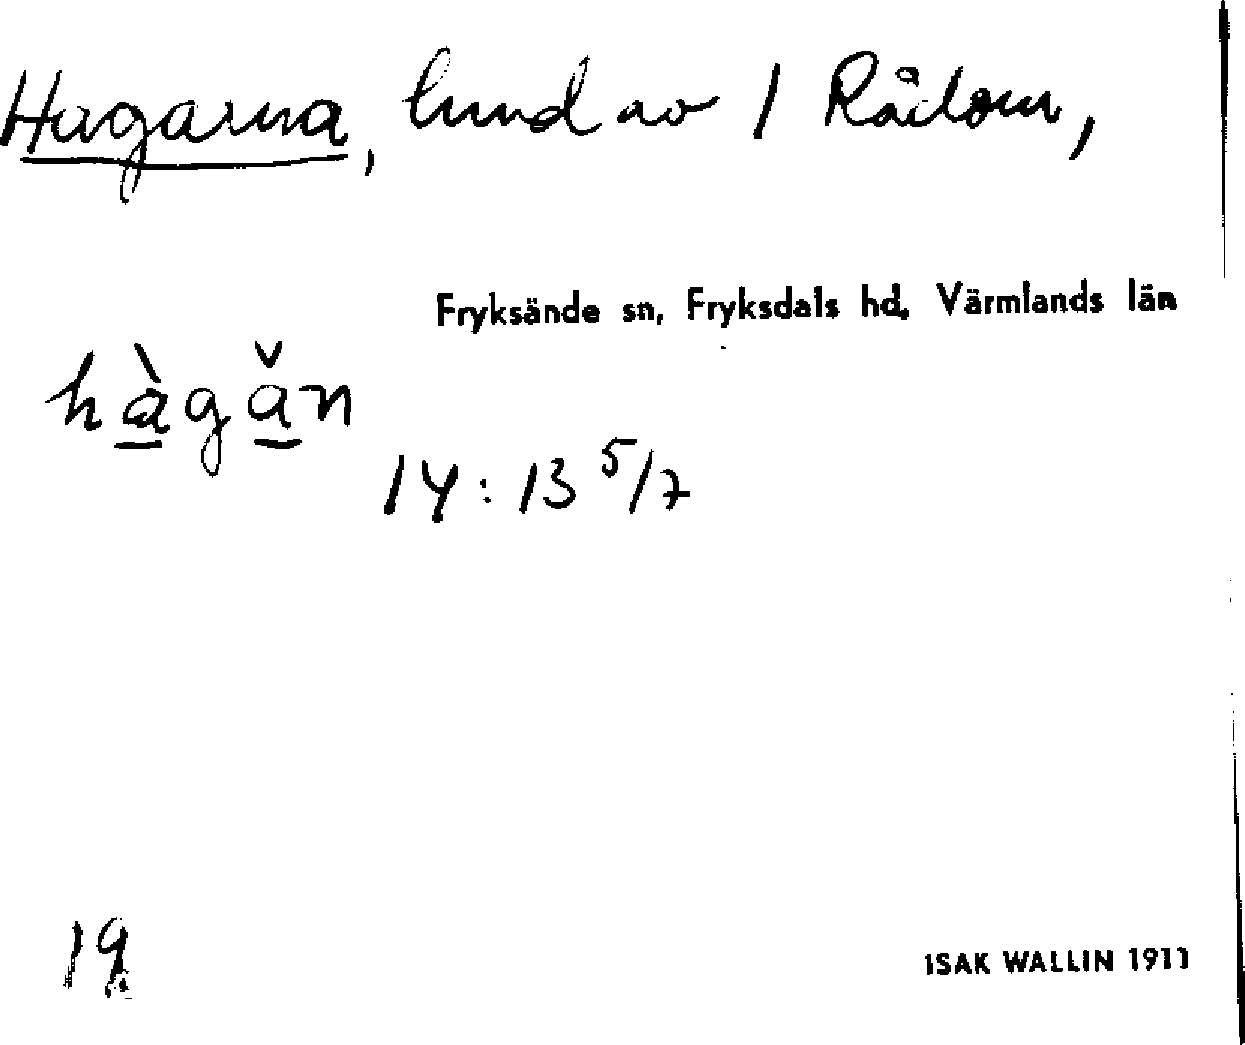 Hagarna, lund av 1 Rådom,
Fryksände sn, Fryksdals hd, Värmlands län
hàgǎn
14:13 5/7
19
ISAK WALLIN 1911